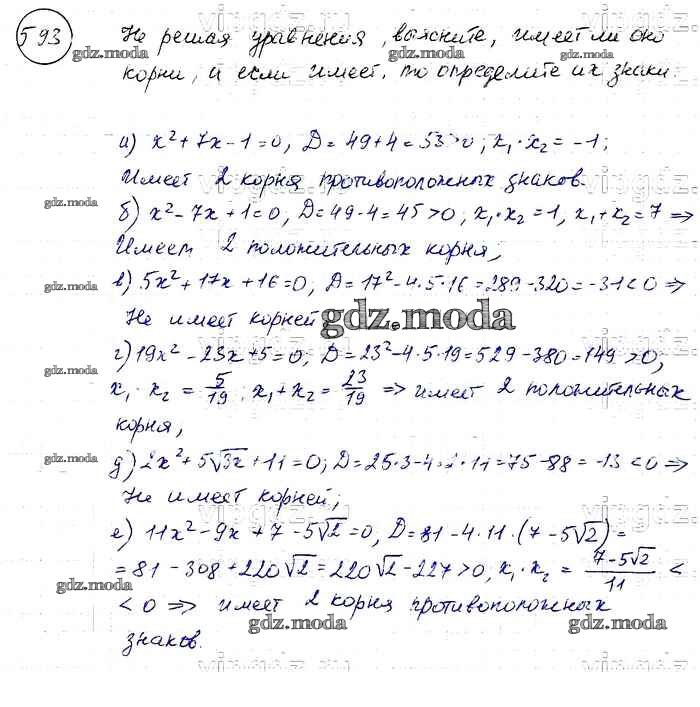 593 Не решая уравнения, выясните, имеет ли оно
корни, и если имеет, то определите их знаки.
а) x² + 7x - 1 = 0, D = 49 + 4 = 53 > 0; x₁ · x₂ = -1;
Имеет 2 корня противоположных знаков.
б) x² - 7x + 1 = 0, D = 49 - 4 = 45 > 0, x₁ · x₂ = 1, x₁ + x₂ = 7 ⇒
Имеет 2 положительных корня;
в) 5x² + 17x + 16 = 0, D = 17² - 4·5·16 = 289 - 320 = -31 < 0 ⇒
Не имеет корней
gdz.moda
г) 19x² - 23x + 5 = 0; D = 23² - 4·5·19 = 529 - 380 = 149 > 0;
x₁ · x₂ = 5/19; x₁ + x₂ = 23/19 ⇒ имеет 2 положительных
корня,
д) 2x² + 5√3x + 11 = 0; D = 25·3 - 4·2·11 = 75 - 88 = -13 < 0 ⇒
Не имеет корней;
е) 11x² - 9x + 7 - 5√2 = 0, D = 81 - 4·11·(7 - 5√2) =
= 81 - 308 + 220√2 = 220√2 - 227 > 0, x₁ · x₂ = (7 - 5√2)/11 <
< 0 ⇒ имеет 2 корня противоположных
знаков.